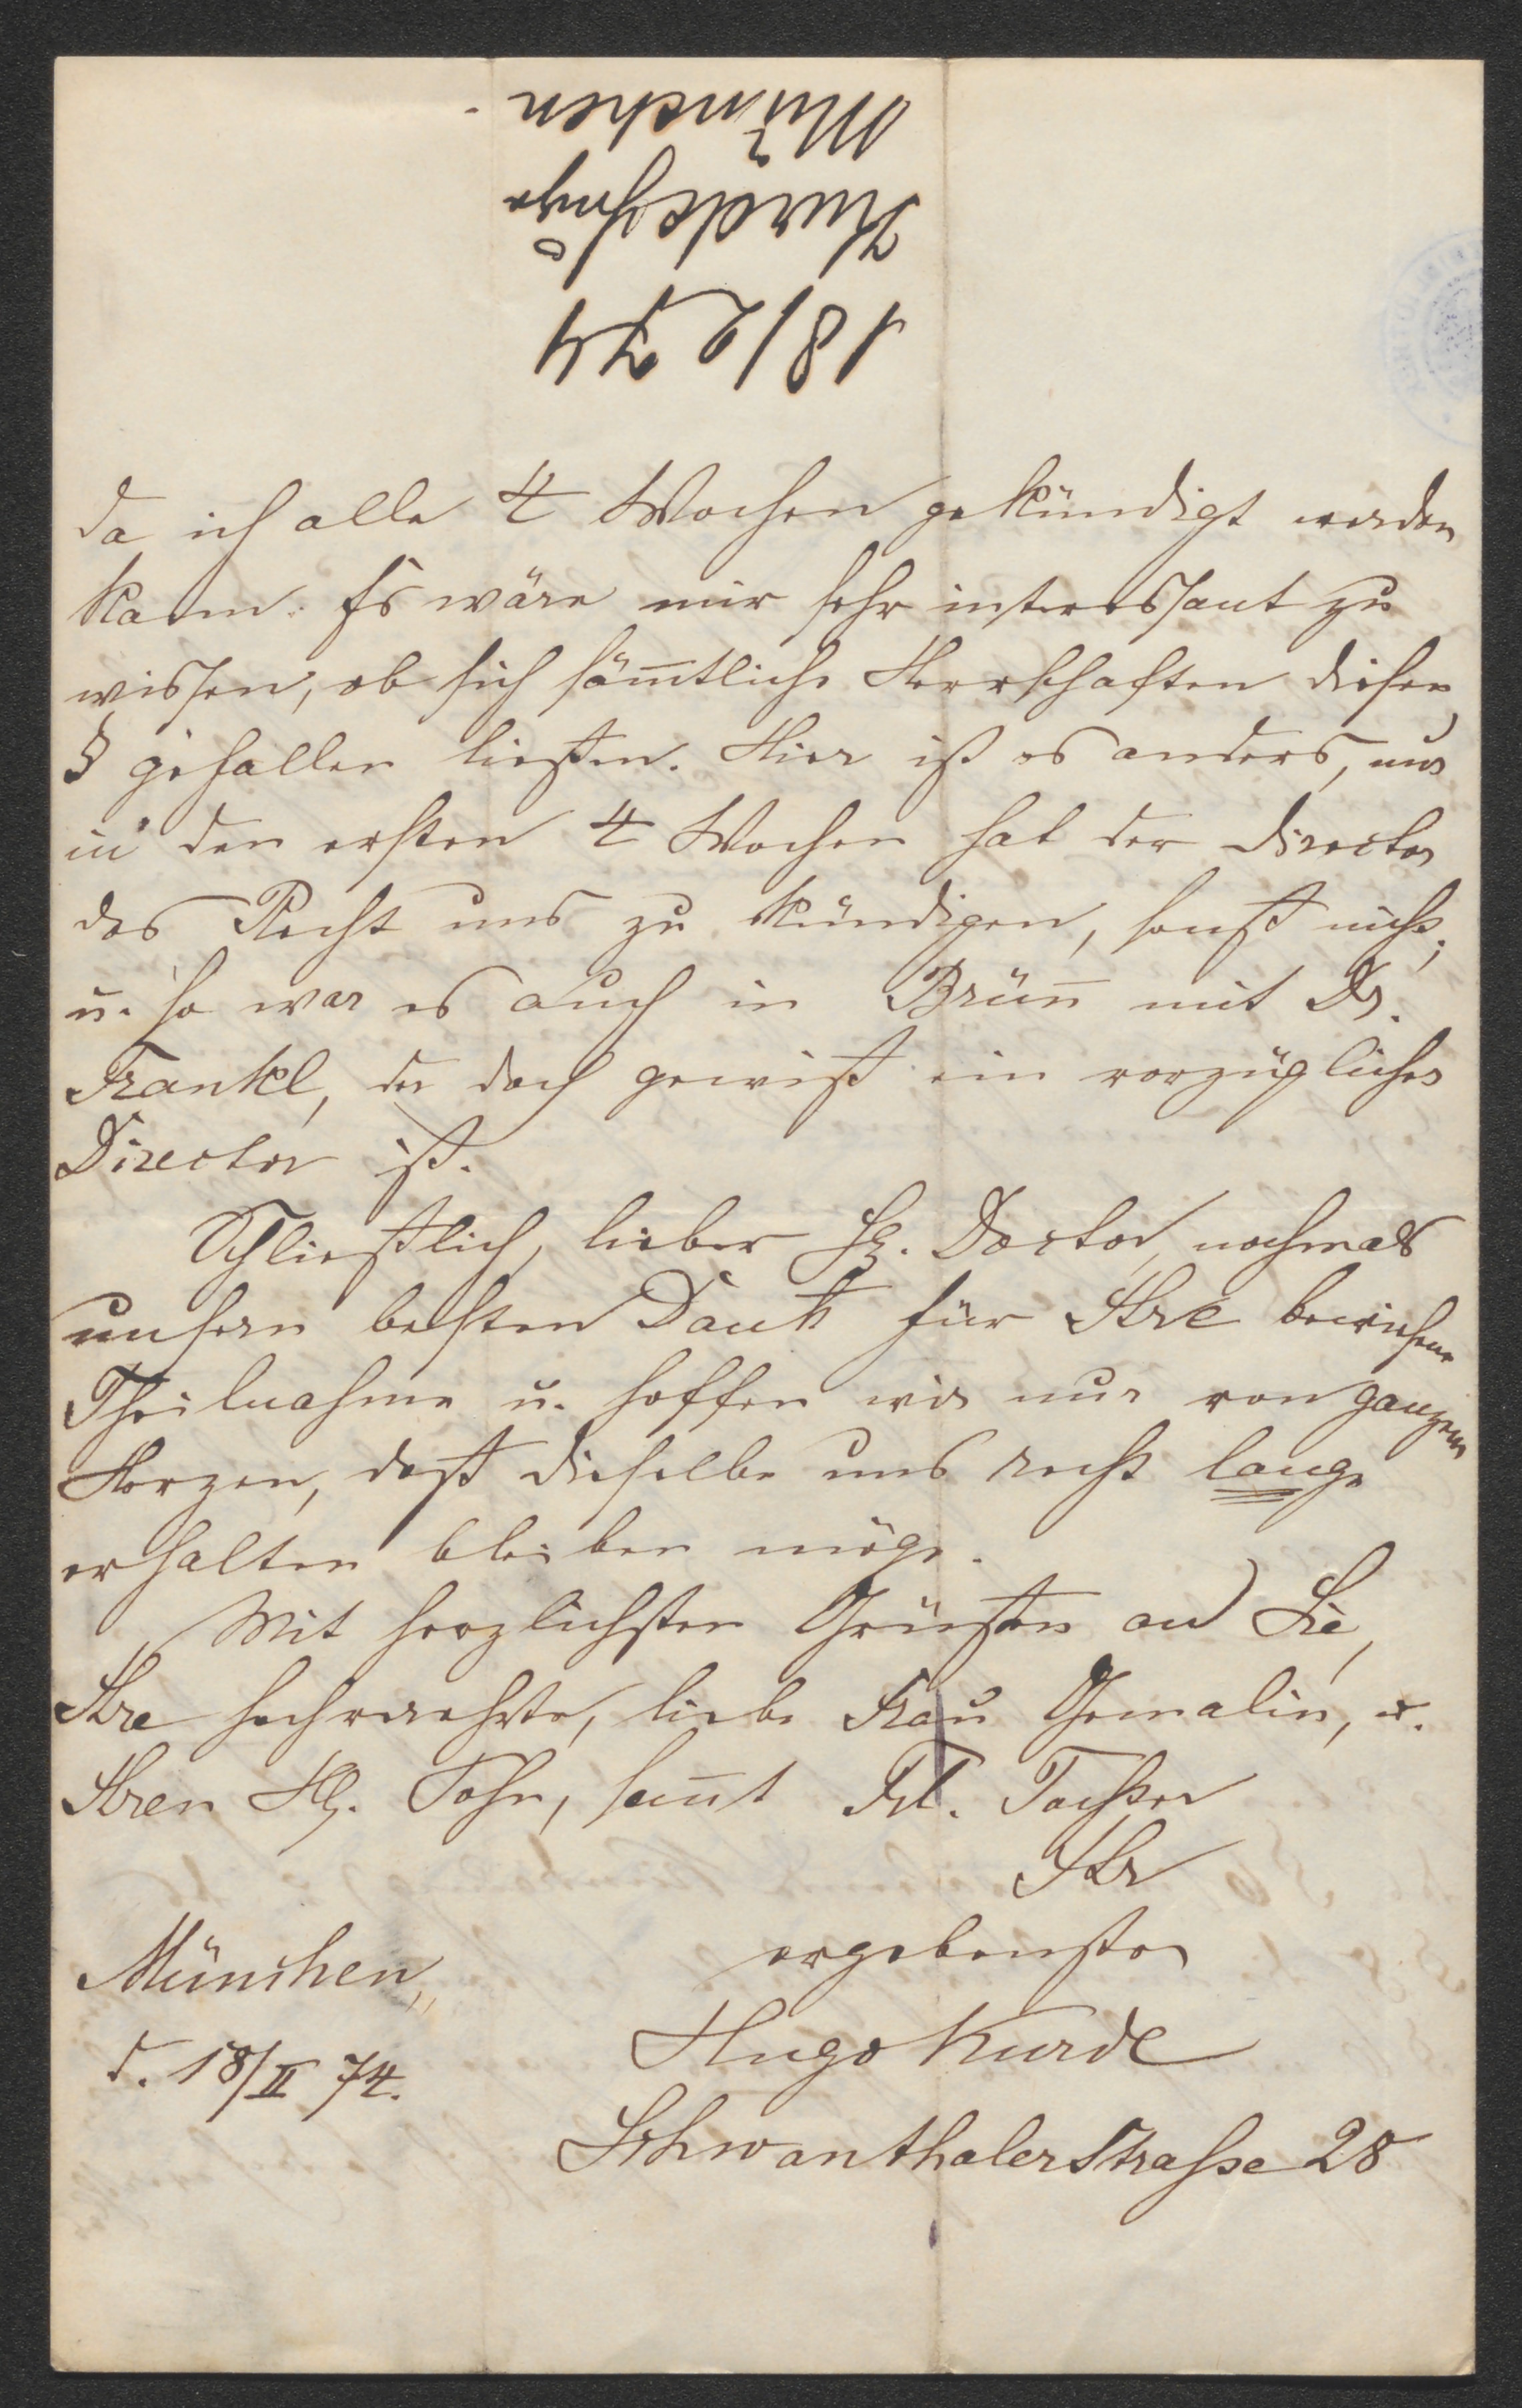 München
Kurde Hugo
18/2 74
da ich alle 4 Wochen gekündigt werden
kann. Es wäre mir sehr interessant zu
wissen, ob sich sämtliche Herrschaften diesen
§ gefallen ließen. Hier ist es anders, nur
in den ersten 4 Wochen hat der Director
das Recht uns zu kündigen, sonst nicht;
u. so war es auch in Brün̅ mit Dr.
Frankl, der doch gewiß ein vorzüglicher
Director ist.
Schließlich, lieber H. Doctor, nochmals
unsern besten Dank für Ihre bewiesene
Theilnahme u. hoffen wir nur von ganzem
Herzen, daß dieselbe uns recht lange
erhalten bleiben möge.
Mit herzlichsten Grüßen an Sie,
Ihre hochverehrte, liebe Frau Gemalin, u.
Ihren H. Sohn, sam̅t Frl. Tochter
Ihr
ergebenster
München,
Hugo Kurde
d. 18/II 74.
Schwanthalerstraße 28